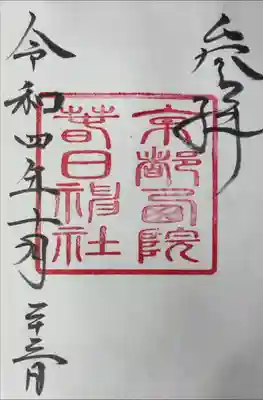 参拝
京都西院
春日神社
令和四年十一月二十三日